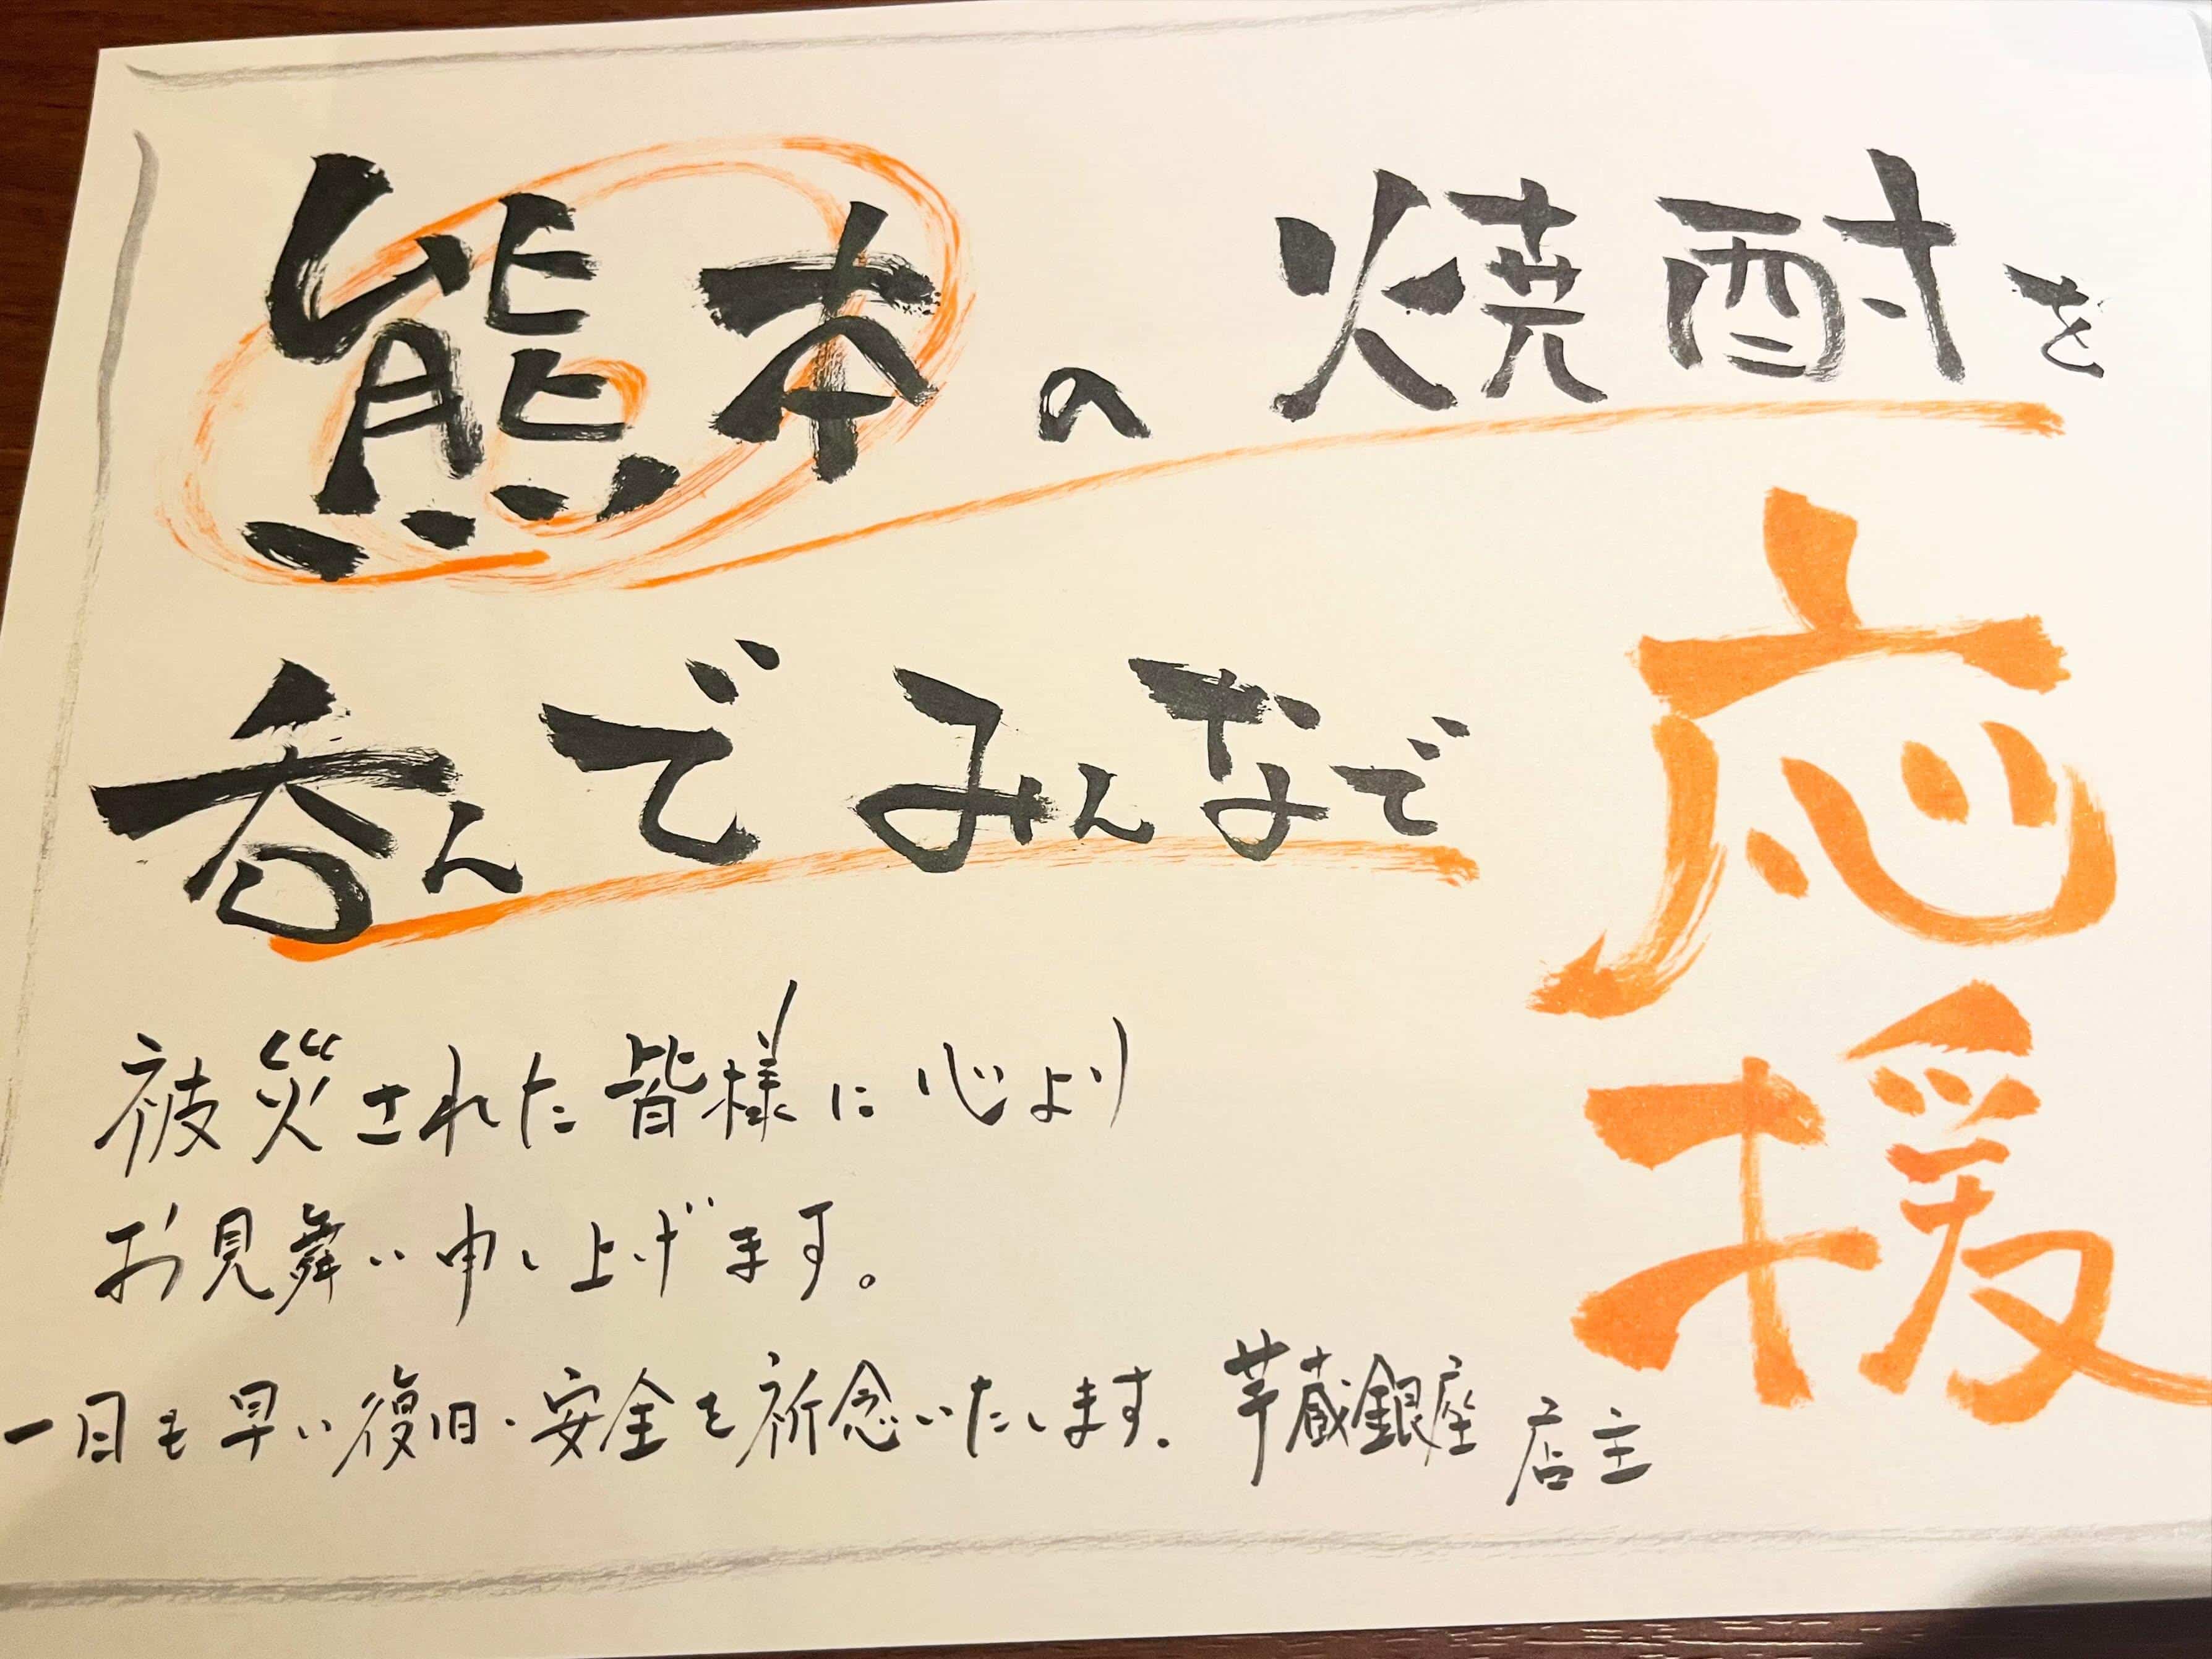 熊本の焼酎を
呑んでみんなで
応援
被災された皆様に心より
お見舞い申し上げます。
一日も早い復旧・安全を祈念いたします。芋蔵銀座 店主